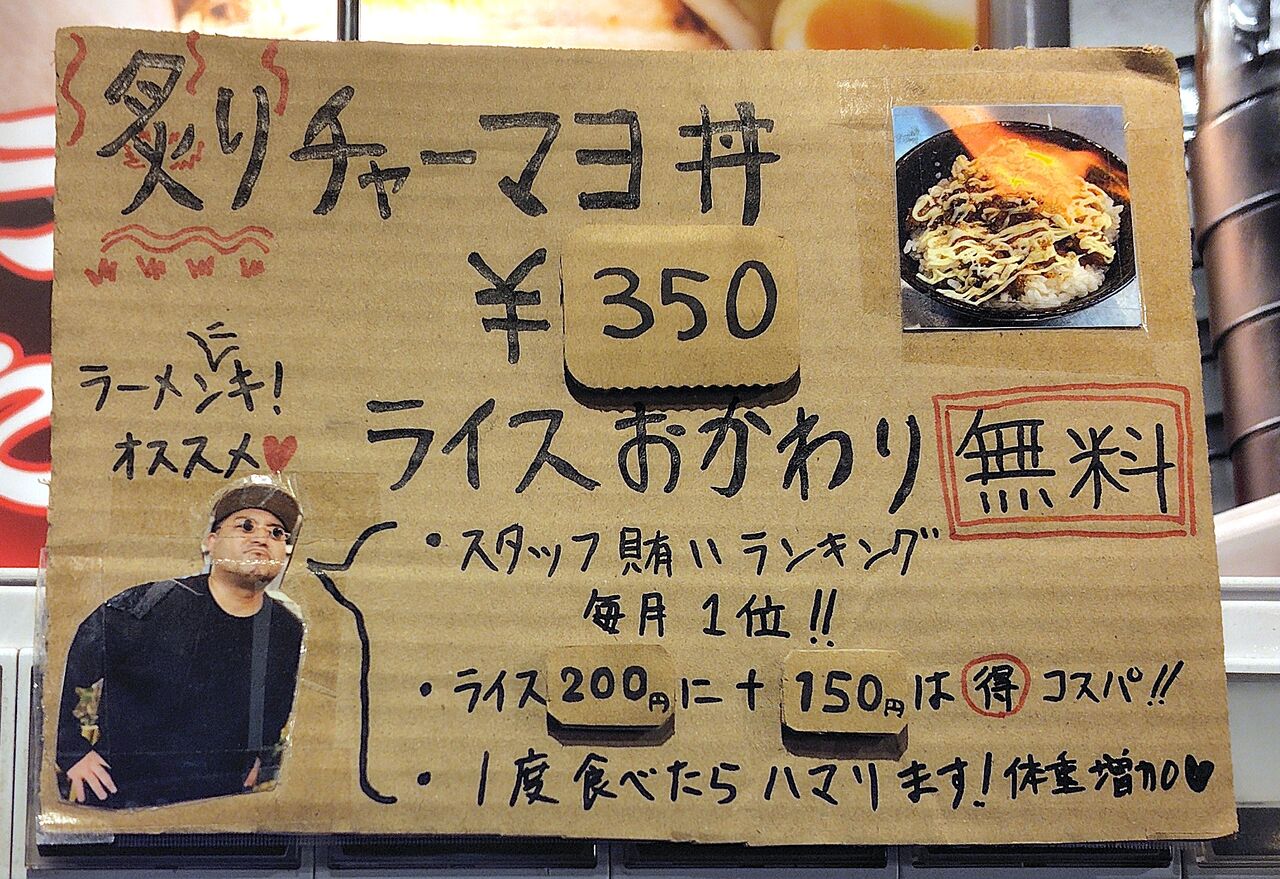 炙りチャーマヨ丼
¥350
ラーメンニキ!
オススメ♥
ライスおかわり無料
・スタッフ賄いランキング
毎月1位!!
・ライス200円に+150円は得コスパ!!
・1度食べたらハマります!体重増加♥